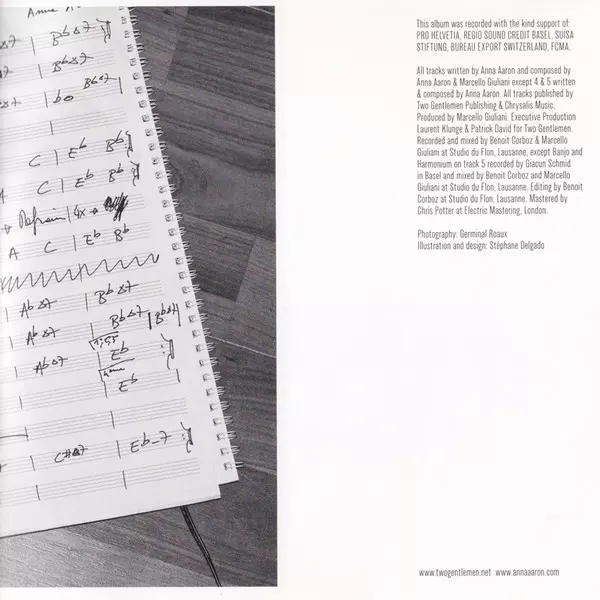 Anna A
Bb△7
Bb△7
Bb△7
bo
C | Eb
C | Eb
A
→ Refrain | 4x →
A C | Eb Bb
Ab△7 | Bb△7
Ab△7 | Bb△7 | Bb△7
Ab△7 | Eb
Eb
C#△7 | Eb-7
This album was recorded with the kind support of:
PRO HELVETIA, REGIO SOUND CREDIT BASEL, SUISA
STIFTUNG, BUREAU EXPORT SWITZERLAND, FCMA.
All tracks written by Anna Aaron and composed by
Anna Aaron & Marcello Giuliani except 4 & 5 written
& composed by Anna Aaron. All tracks published by
Two Gentlemen Publishing & Chrysalis Music.
Produced by Marcello Giuliani. Executive Production
Laurent Klunge & Patrick David for Two Gentlemen.
Recorded and mixed by Benoit Corboz & Marcello
Giuliani at Studio du Flon, Lausanne, except Banjo and
Harmonium on track 5 recorded by Giacun Schmid
in Basel and mixed by Benoit Corboz and Marcello
Giuliani at Studio du Flon, Lausanne. Editing by Benoit
Corboz at Studio du Flon, Lausanne. Mastered by
Chris Potter at Electric Mastering, London.
Photography: Germinal Roaux
Illustration and design: Stéphane Delgado
www.twogentlemen.net www.annaaaron.com